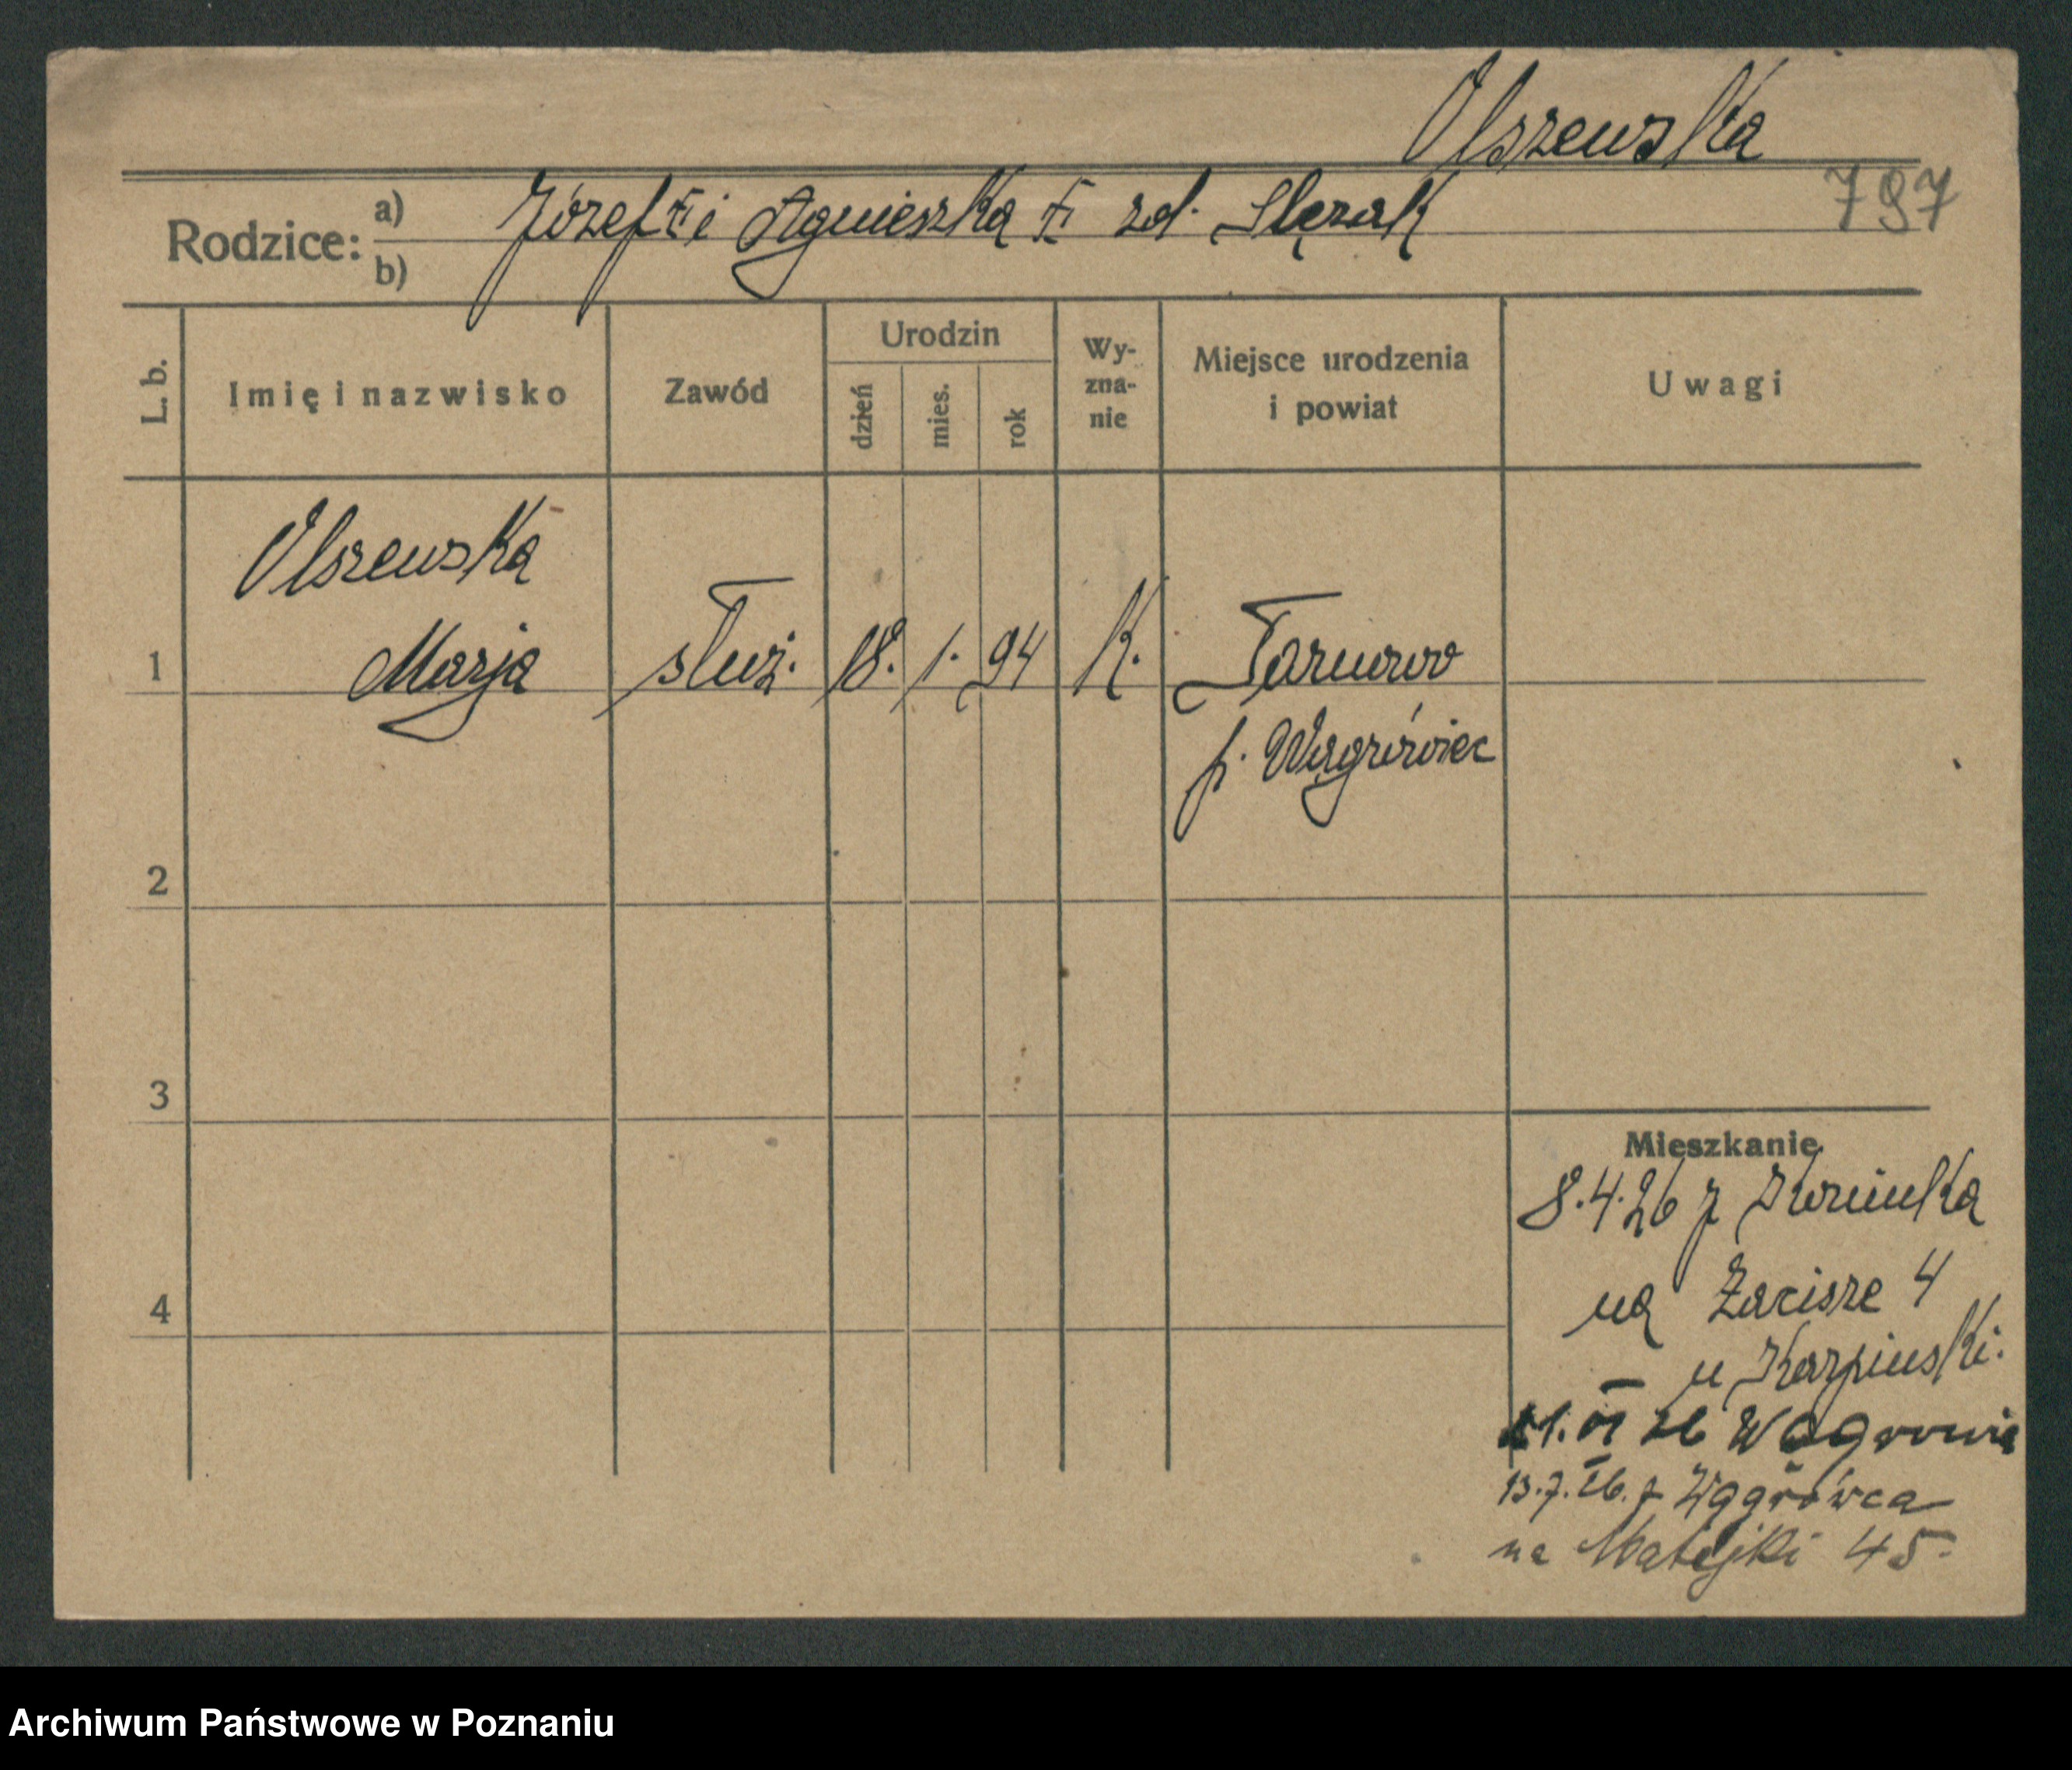 Olszewska
797
Rodzice: a) Józef i Agnieszka zd. Ślęzak
b)
L. b.
Imię i nazwisko
Zawód
Urodzin
dzień
mies.
rok
Wy-
zna-
nie
Miejsce urodzenia
i powiat
Uwagi
Olszewska
1 Marja służ. 18. 1. 94 K. Tarnowo
p. Wągrówiec
2
3
4
Mieszkanie
8.4.26 z
na Zacisze 4
u Karpiński.
26
13.7.26. z Wągrówca
na Matejki 45.
Archiwum Państwowe w Poznaniu